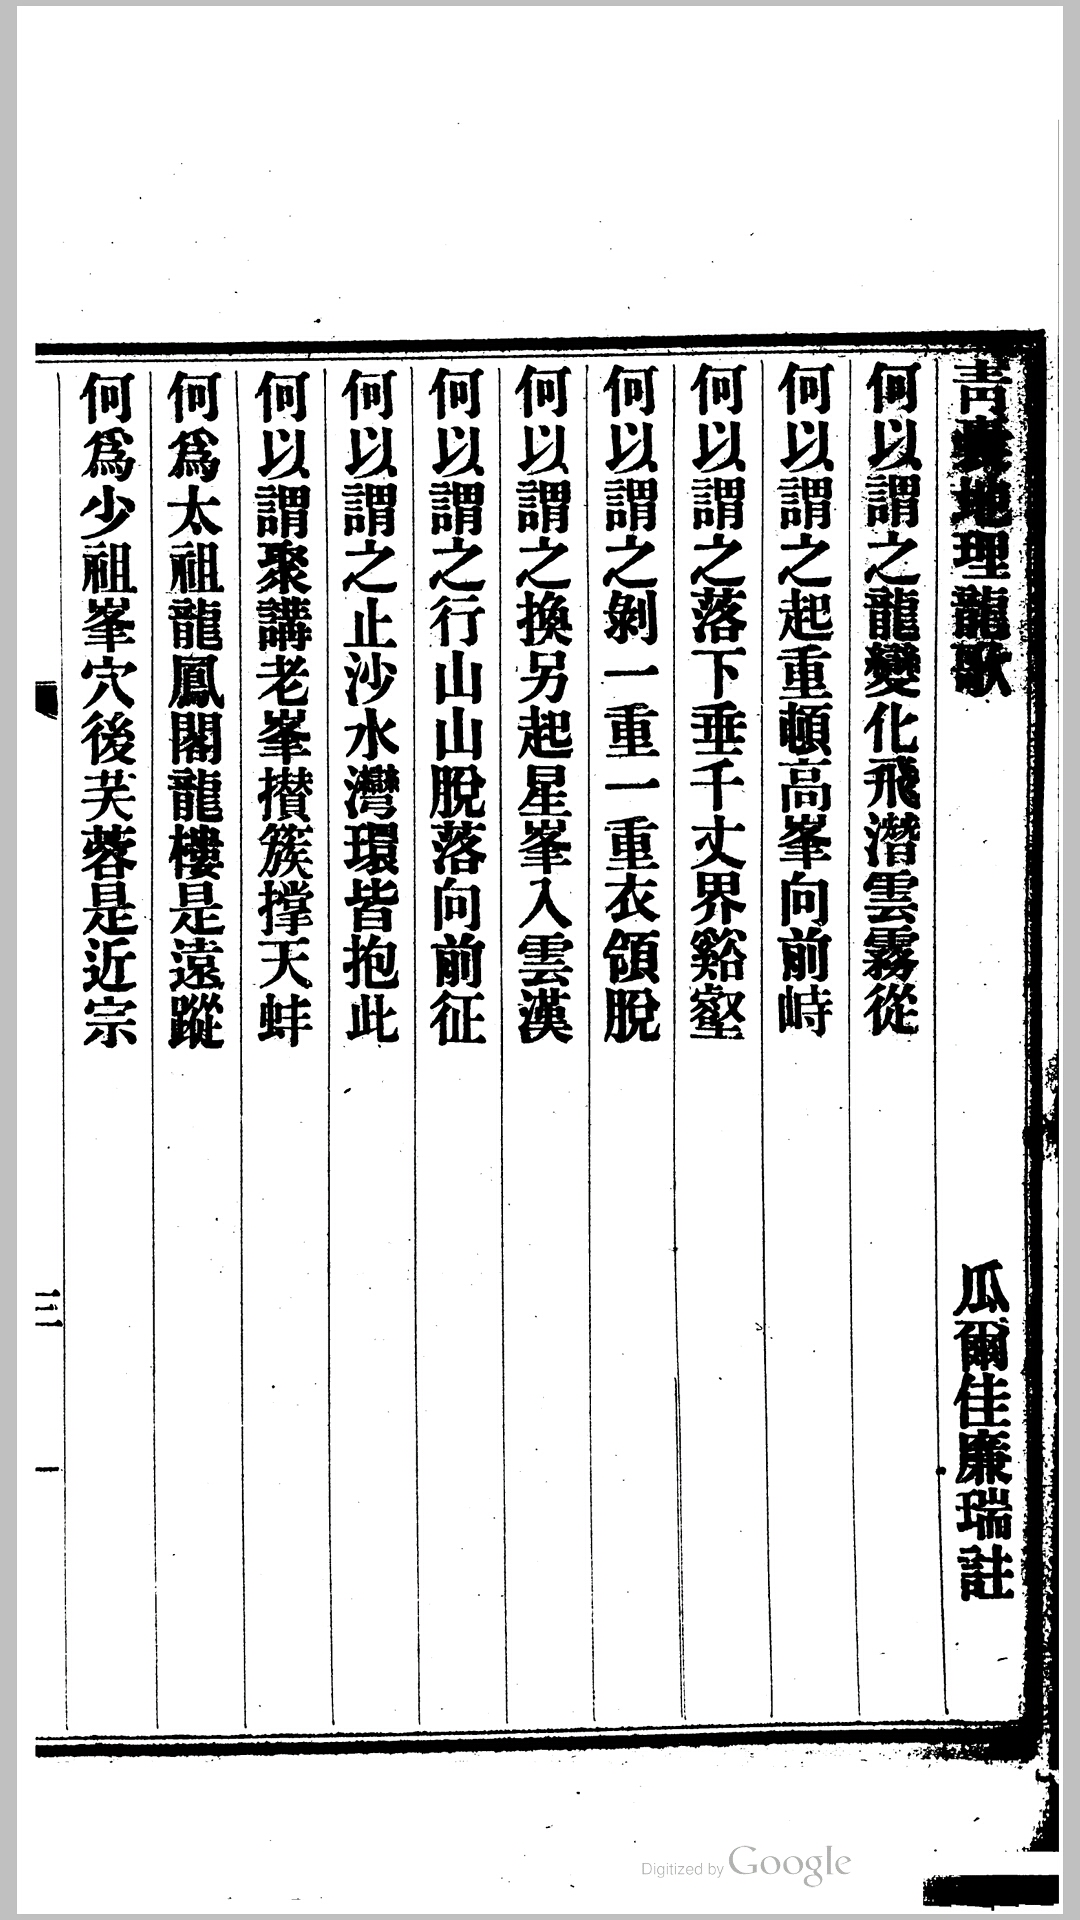 青囊地理龍歌
瓜爾佳廉瑞註
何以謂之龍變化飛潛雲霧從
何以謂之起重頓高峯向前峙
何以謂之落下垂千丈界谿壑
何以謂之剝一重一重衣領脫
何以謂之換另起星峯入雲漢
何以謂之行山山脫落向前征
何以謂之止沙水灣環皆抱此
何以謂聚講老峯攢簇撐天蚌
何爲太祖龍鳳閣龍樓是遠蹤
何爲少祖峯穴後芙蓉是近宗
三
一
Digitized by Google